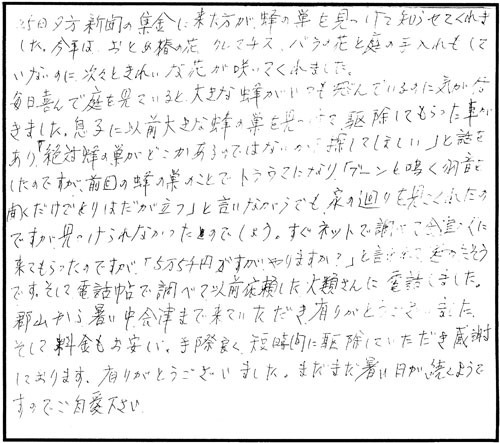 25日夕方新聞の集金に来た方が蜂の巣を見つけて知らせてくれま
した。今年は、おとめ椿の花、クレマチス、バラの花と庭の手入れもして
いないのに、次々ときれいな花が咲いてくれました。
毎日喜んで庭を見ていると、大きな蜂がいつも飛んでいるのに気が付
きました。息子に以前大きな蜂の巣を見つけて駆除してもらった事が
あり「絶対蜂の巣がどこかあるのではないか、探してほしい」と話を
したのですが、前回の蜂の巣のことでトラウマになり「ブーンと鳴く羽音を
聞くだけでとりはだが立つ」と言いながらでも、家の廻りを見てくれたの
ですが見つけられなかったのでしょう。すぐネットで調べて会津
来てもらったのですが、「5万5千円ですがやりますか?」と言われて
です。そして電話帖で調べて以前依頼した さんに電話しました。
郡山から暑い中会津まで来ていただき有りがとうございました。
そして料金もお安い。手際良く、短時間に駆除していただき感謝
しております。有りがとうございました。まだまだ暑い日が続くようで
すのでご自愛下さい